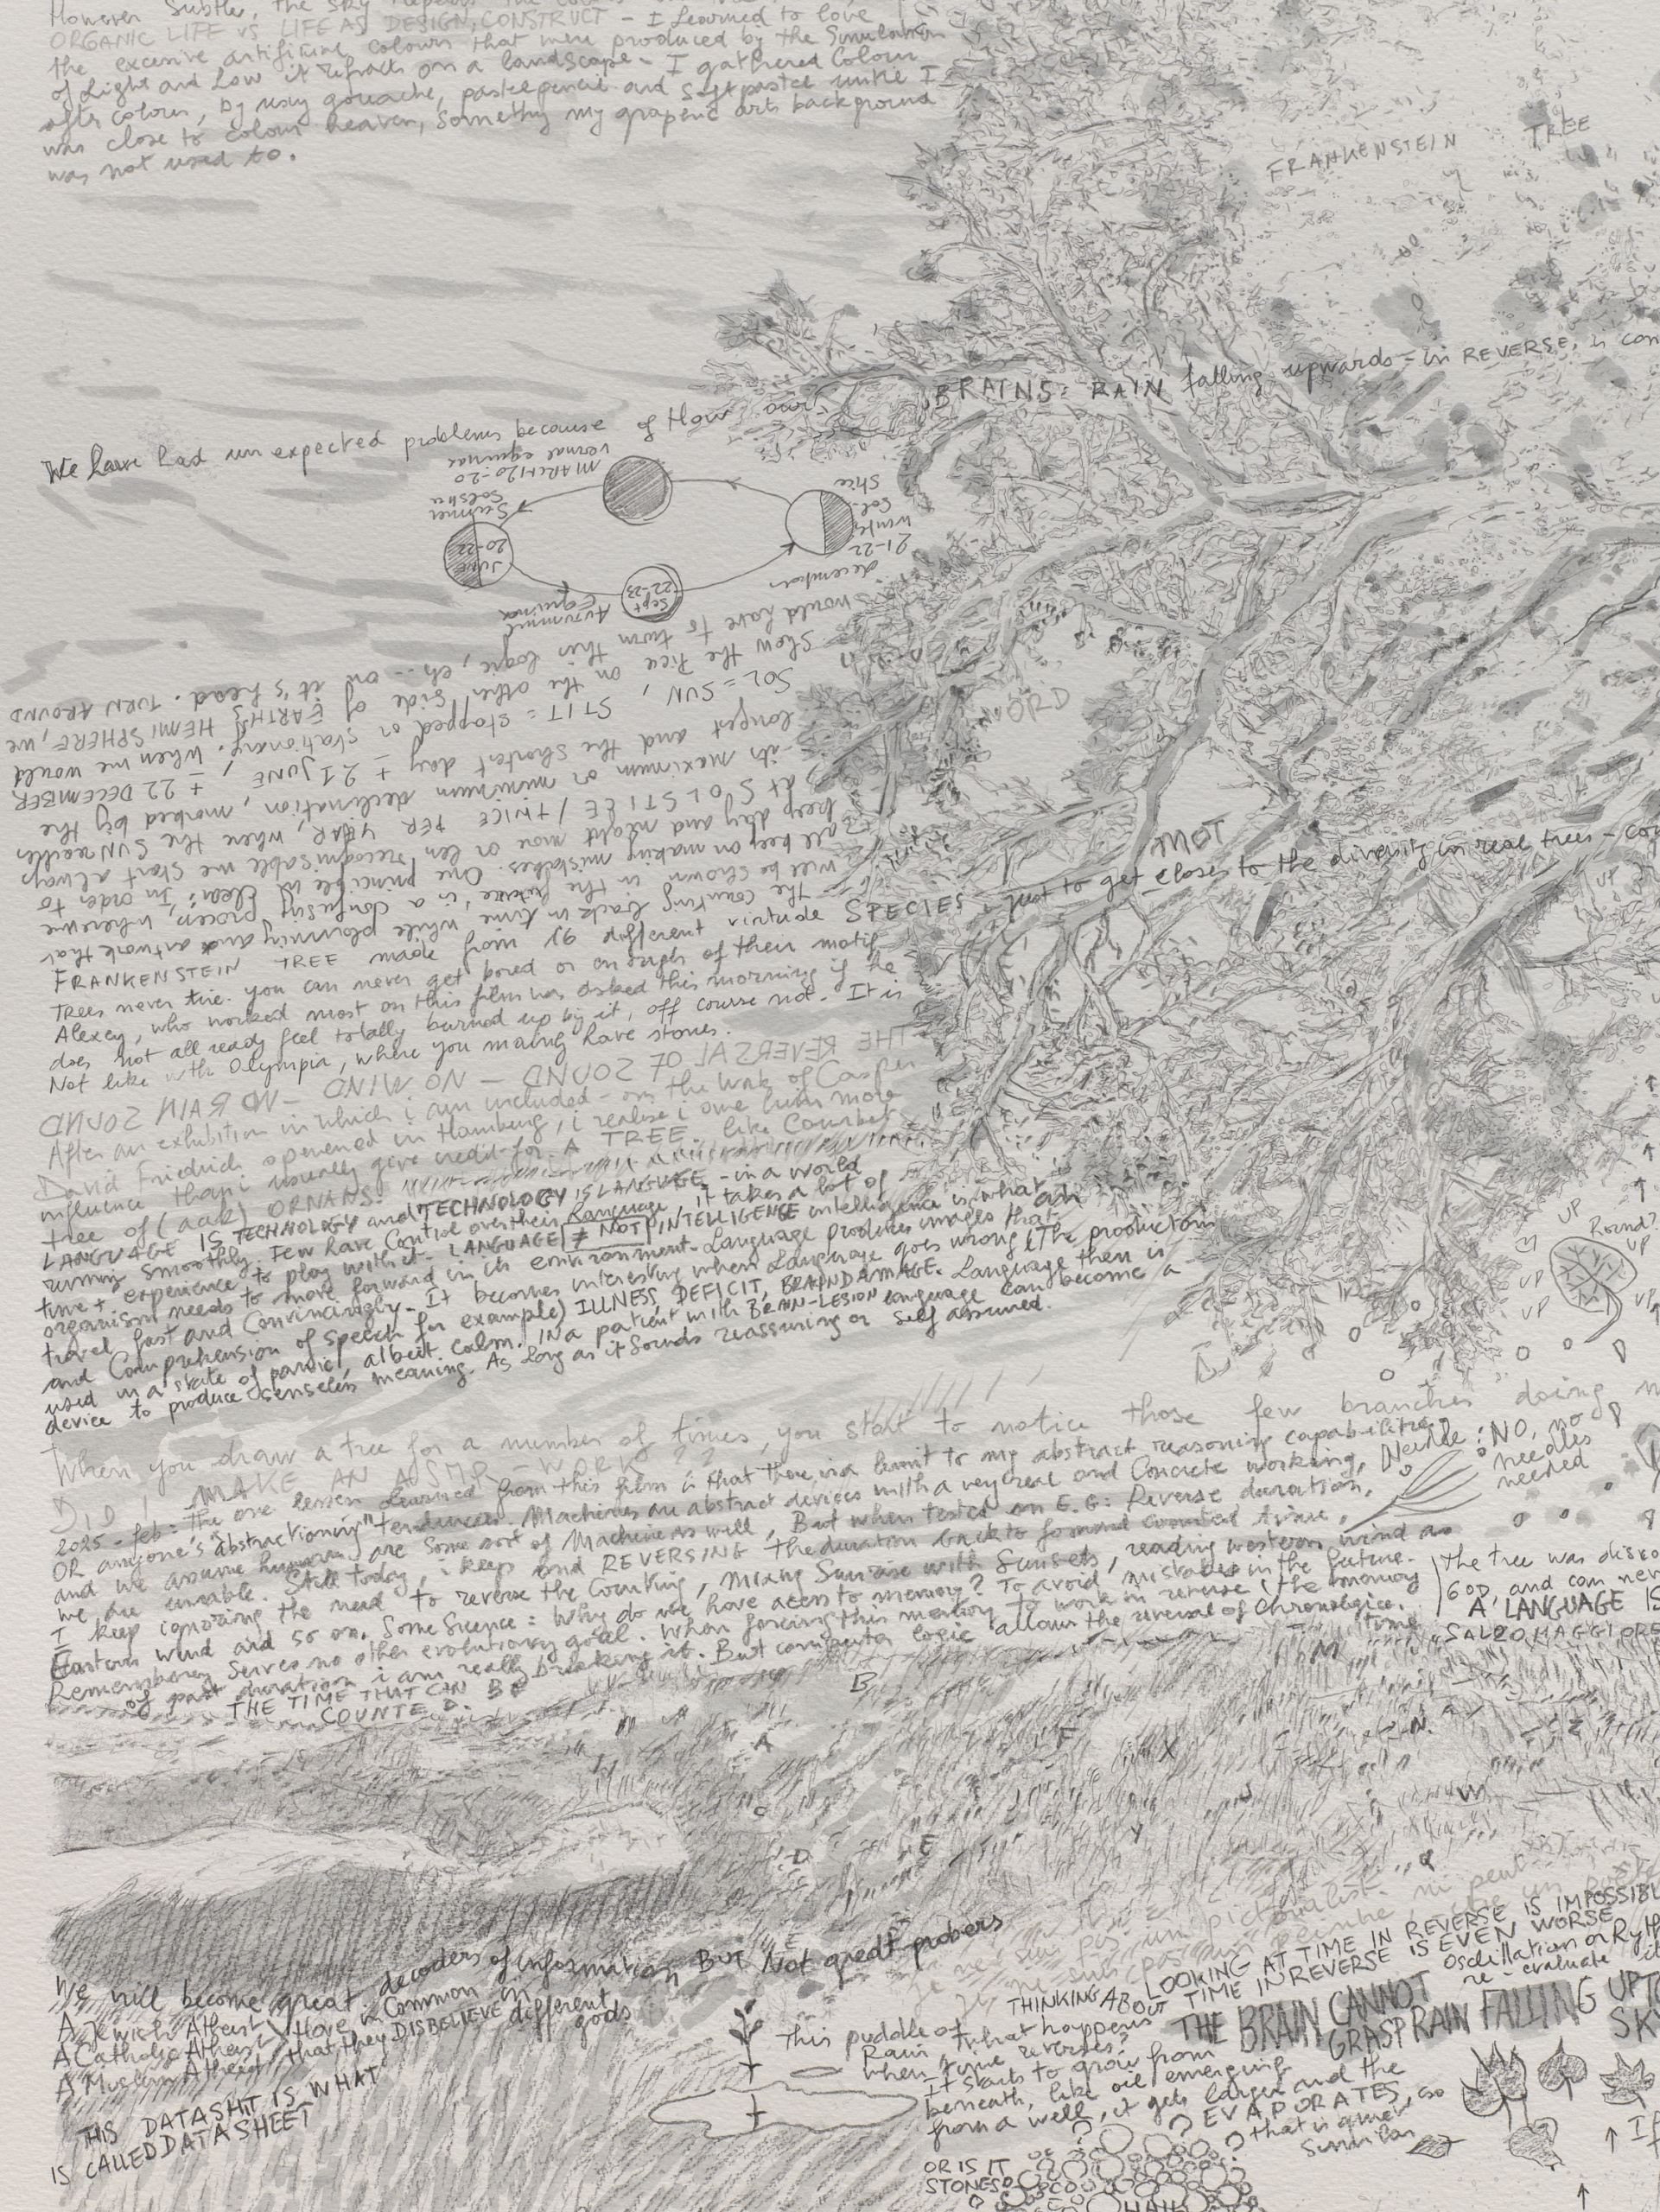 However subtle, the sky
ORGANIC LIFE vs LIFE AS DESIGN, CONSTRUCT - I learned to love
the excessive artificial colours that were produced by the simulation
of light and how it refracts on a landscape - I gathered colour
after colour, by using gouache, pastelpencil and soft pastel until I
was close to colour heaven, something my graphic arts background
was not used to.
FRANKENSTEIN TREE
BRAINS: RAIN falling upwards - in REVERSE, is con
We have had unexpected problems because of How
MARCH 20-20
vernal equinox
Summer
Solstice
JUNE
20-22
Sept
22-23
Autumnal
Equinox
december
21-22
winter
Sol-
stice
WORD
TURN AROUND
on it's head.
this logic, etc...
would have to turn
EARTH'S HEMISPHERE, we
on the other side of
show the tree
stationary. When we would
SOL = SUN, STIT = stopped or
± 21 JUNE, ± 22 DECEMBER
longest and the shortest day
its maximum or minimum declination, marked by the
at SOLSTICE / TWICE PER YEAR, when the SUN reaches
keep day and night more or less recognisable we start always
all keep on making mistakes. One principle is clear: In order to
will be shown in the future, is a confusing process, wherein we
The counting back in time while planning and artwork that
NOT
FRANKENSTEIN TREE made from 19 different virtual SPECIES - just to get closer to the diversity in real trees - con
Trees never tire. You can never get bored or enough of their motif
Alexey, who worked most on this film was asked this morning if he
does not all ready feel totally burned up by it, off course not. It is
Not like with Olympia, where you mainly have stones.
THE REVERSAL OF SOUND - NO WIND - NO RAIN SOUND
After an exhibition in which i am included - on the work of Casper
David Friedrich opened in Hamburg, i realise i owe him more
influence than i usually give credit for. A TREE. like Courbet
tree of (aak) ORNANS.
LANGUAGE IS TECHNOLOGY and TECHNOLOGY IS LANGUAGE - in a world
running smoothly. Few have control over their language, it takes a lot of
time + experience to play with it - LANGUAGE ≠ NOT INTELLIGENCE intelligence is what an
organism needs to move forward in its environment. Language produces images that
travel fast and convincingly - It becomes interesting when language goes wrong (The production
and Comprehension of speech for example) ILLNESS, DEFICIT, BRAINDAMAGE. Language then is
used in a state of panic, albeit calm. In a patient with BRAIN-LESION language can become a
device to produce senseless meaning. As long as it sounds reassuring or self assured.
UP
Round?
UP
UP
UP
UP
UP
When you draw a tree for a number of times, you start to notice those few branches doing
DID I MAKE AN ASMR - WORK??
2025 - feb: The one lesson learned from this film is that there is a limit to my abstract reasoning capabilities
OR anyone's "abstractioning" tendencies. Machines are abstract devices with a very real and concrete working,
and we assume humans are some sort of Machine as well, But when tested on E.G: Reverse duration,
we are unable. Still today, i keep REVERSING the duration back to forward counted time,
I keep ignoring the need to reverse the counting, mixing sunrise with sunsets, reading western wind as
Eastern wind and so on. Some Science: Why do we have access to memory? To avoid mistakes in the future.
Remembering serves no other evolutionary goal. When forcing this memory to work in reverse (the memory
of past duration i am really breaking it. But computer logic allows the reversal of chronologics.
THE TIME THAT CAN BE
COUNTED.
time
Needle: NO, no
needles
needed
The tree was disco
GOD, and can nev
A LANGUAGE IS
SALZO MAGGIORE
M
B
A
F
X
N
Z
C
J
W
Y
D
E
Q
je ne suis pas un pictorialist. ni peut
We will become great decoders of information BUT Not great probers
A Jewish Atheist
A Catholic Atheist
A Muslim Atheist
Have in Common in
that they DISBELIEVE different
gods
THIS DATASHIT IS WHAT
IS CALLED DATASHEET
This puddle of
Rain, what happens
when time reverses?
It starts to grow from
beneath, like oil emerging
from a well, it gets larger and the
EVAPORATES, so
that is quiet
similar
THINKING ABOUT
LOOKING AT TIME IN REVERSE IS IMPOSSIBL
TIME IN REVERSE IS EVEN WORSE
Oscillation or Ryth
re-evaluate
THE BRAIN CANNOT
GRASP RAIN FALLING UPTO
SKY
OR IS IT
STONES?
HAIL
If